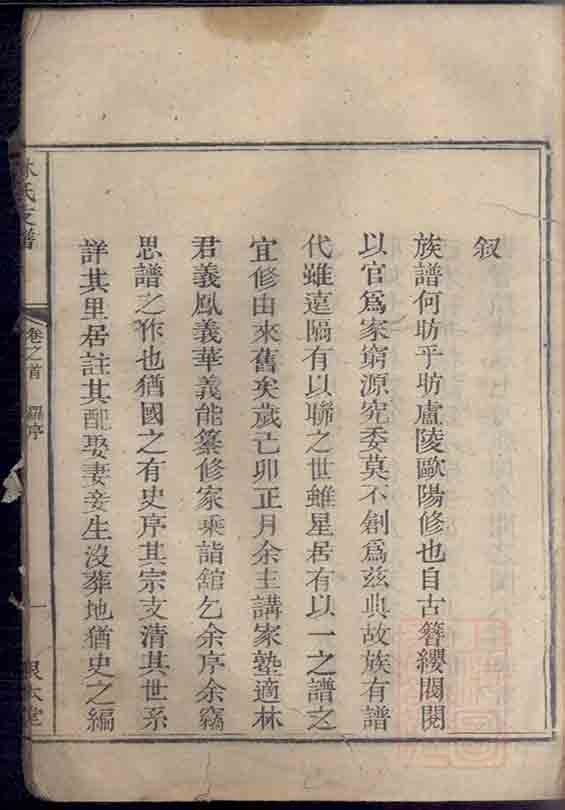 叙
族譜何昉乎昉盧陵歐陽修也自古簪纓閥閱
以官爲家窮源究委莫不創爲兹典故族有譜
代雖遠隔有以聯之世雖星居有以一之譜之
宜修由來舊矣歲己卯正月余主講家塾適林
君義鳳義華義能纂修家乘詣舘乞余序余竊
思譜之作也猶國之有史序其宗支清其世系
詳其里居註其配娶妻妾生沒葬地猶史之編
林氏支譜
卷之首
序
一